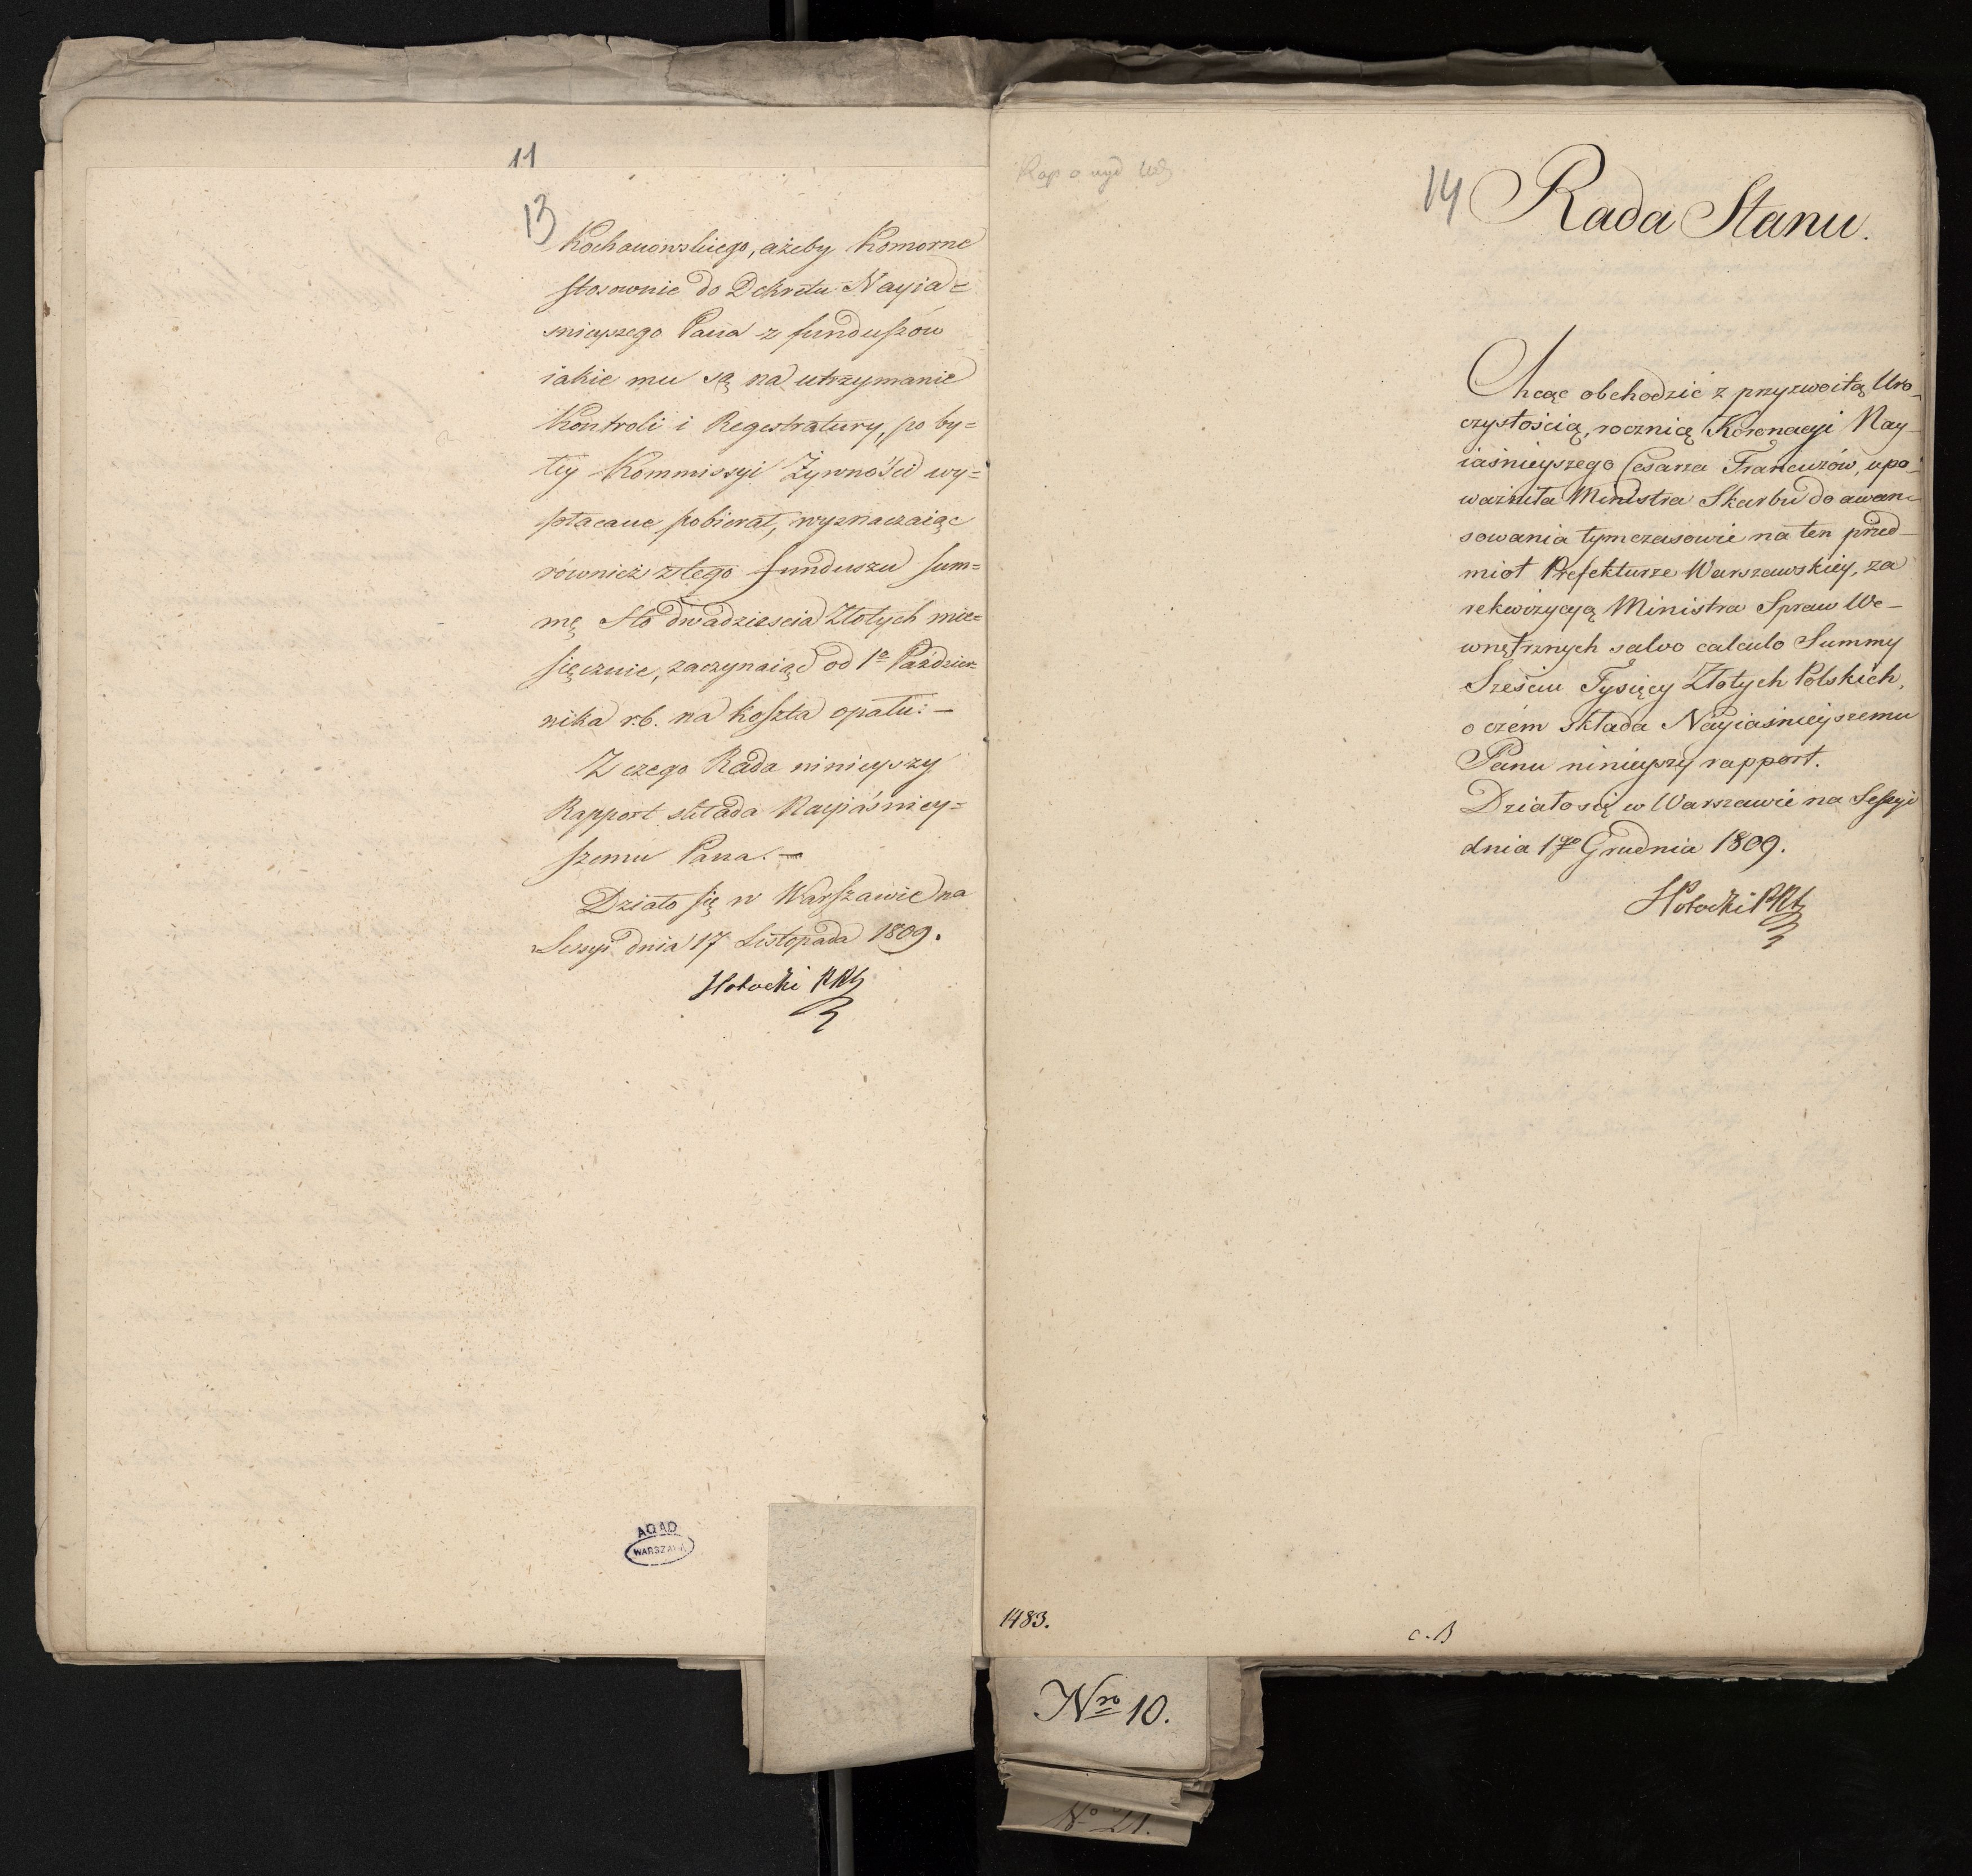 11
13
Kochanowskiego, ażeby Komorne
stosownie do Dekretu Nayia=
snieyszego Pana z funduszów
iakie mu są na utrzymanie
Kontroli i Regestratury, po by=
łey Kommissyi Żywności wy=
płacane pobierał, wyznaczaiąc
również z tego funduszu sum=
mę Sto dwadziescia Złotych mie=
sięcznie, zaczynaiąc od 1º Paździer=
nika r.b. na koszta opału: —
Z czego Rada ninieyszy
Rapport składa Nayiáśniey=
szemu Panu. —
Działo się w Warszawie na
Sessyi dnia 17 Listopada 1809.
AGAD
WARSZAWA
14
Rada Stanu.
Chcąc obchodzić z przyzwoitą Uro_
czystością, rocznicę Koronacyi Nay_
iaśnieyszego Cesarza Francuzów, upo_
ważniła Ministra Skarbu do awan_
sowania tymczasowie na ten przed_
miot Prefekturze Warszawskiey, za
rekwizycyą Ministra Spraw We_
wnętrznych salvo calculo Summy
Sześciu Tysięcy Złotych Polskich,
o czém składa Nayiaśnieyszemu
Panu ninieyszy rapport.
Działo się w Warszawie na Sessyi
dnia 1go Grudnia 1809.
1483.
c. B
Nro 10.
No 21.